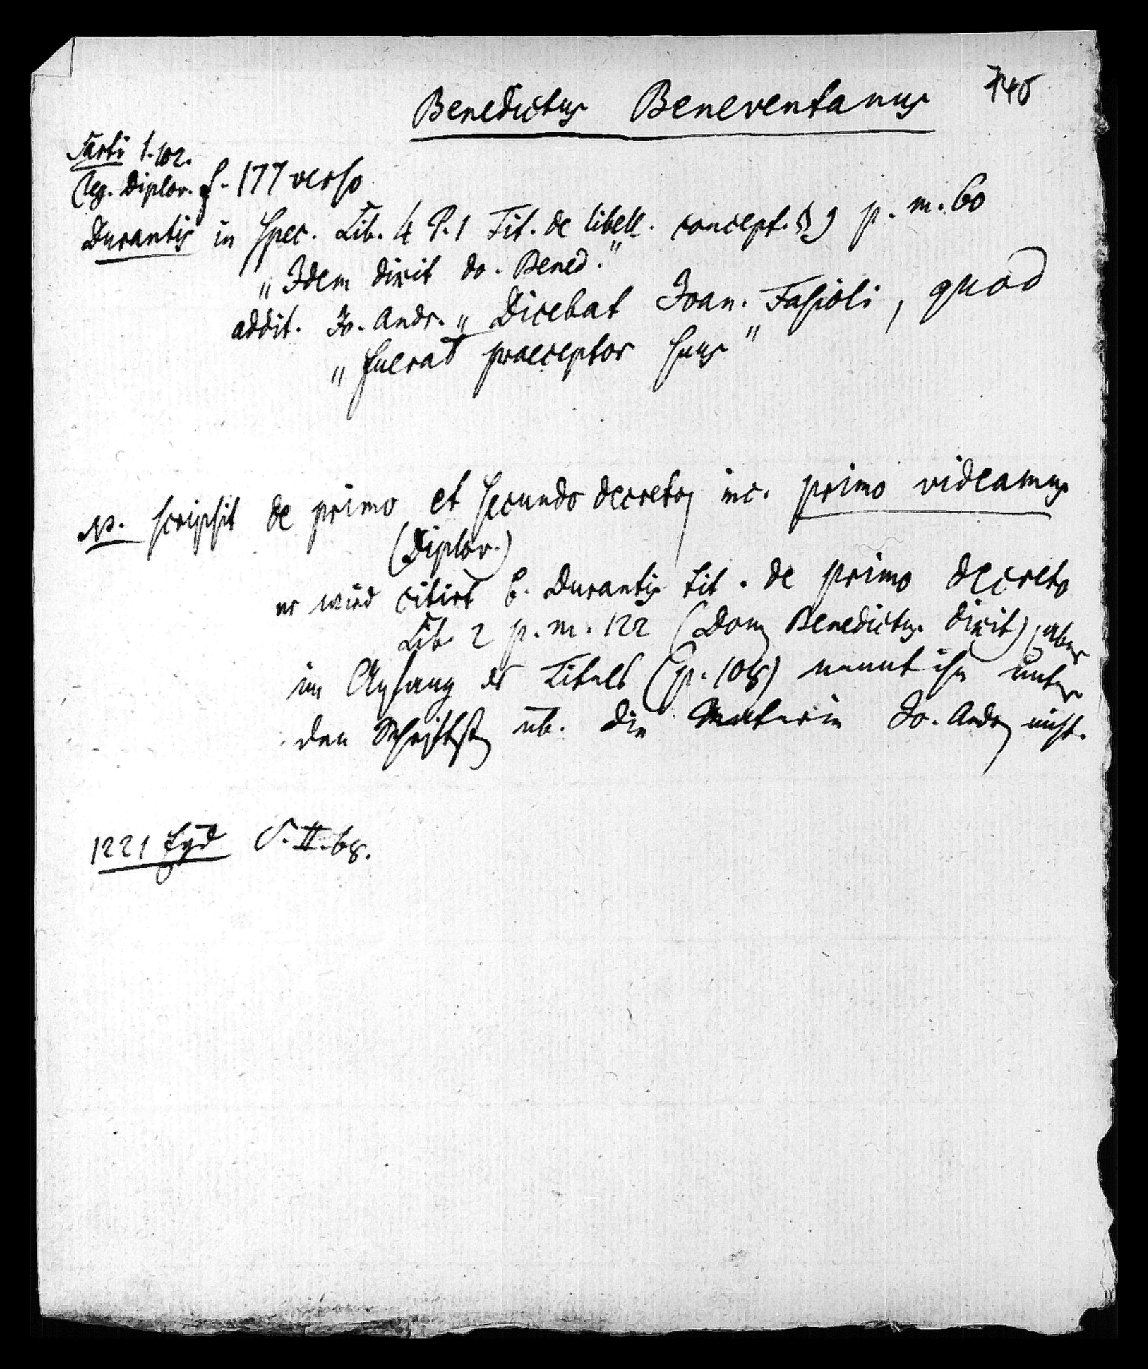 Benedictus Beneventanus
Sarti 1. 102.
Diplov. f. 177 verso
Durantis in Spec. Lib. 4 P. 1 Tit. de libell. concept. § 9 p. m. 60
„Idem dixit do. Bened."
addit. Jo. Andr. „Dicebat Joan. Fasioli, quod
„fuerat praeceptor suus"
NB. scripsit de primo et secundo decreto, inc. primo videamus
(Diplov.)
er wird citirt b. Durantis tit. de primo decreto
Lib. 2 p. m. 122 (Dom Benedictus dixit), aber
im Anfang des Titels (p. 108) nennt ihn unter
den Schriftst. üb. die Materie Jo. Andr. nicht.
1221 S. II. 68.